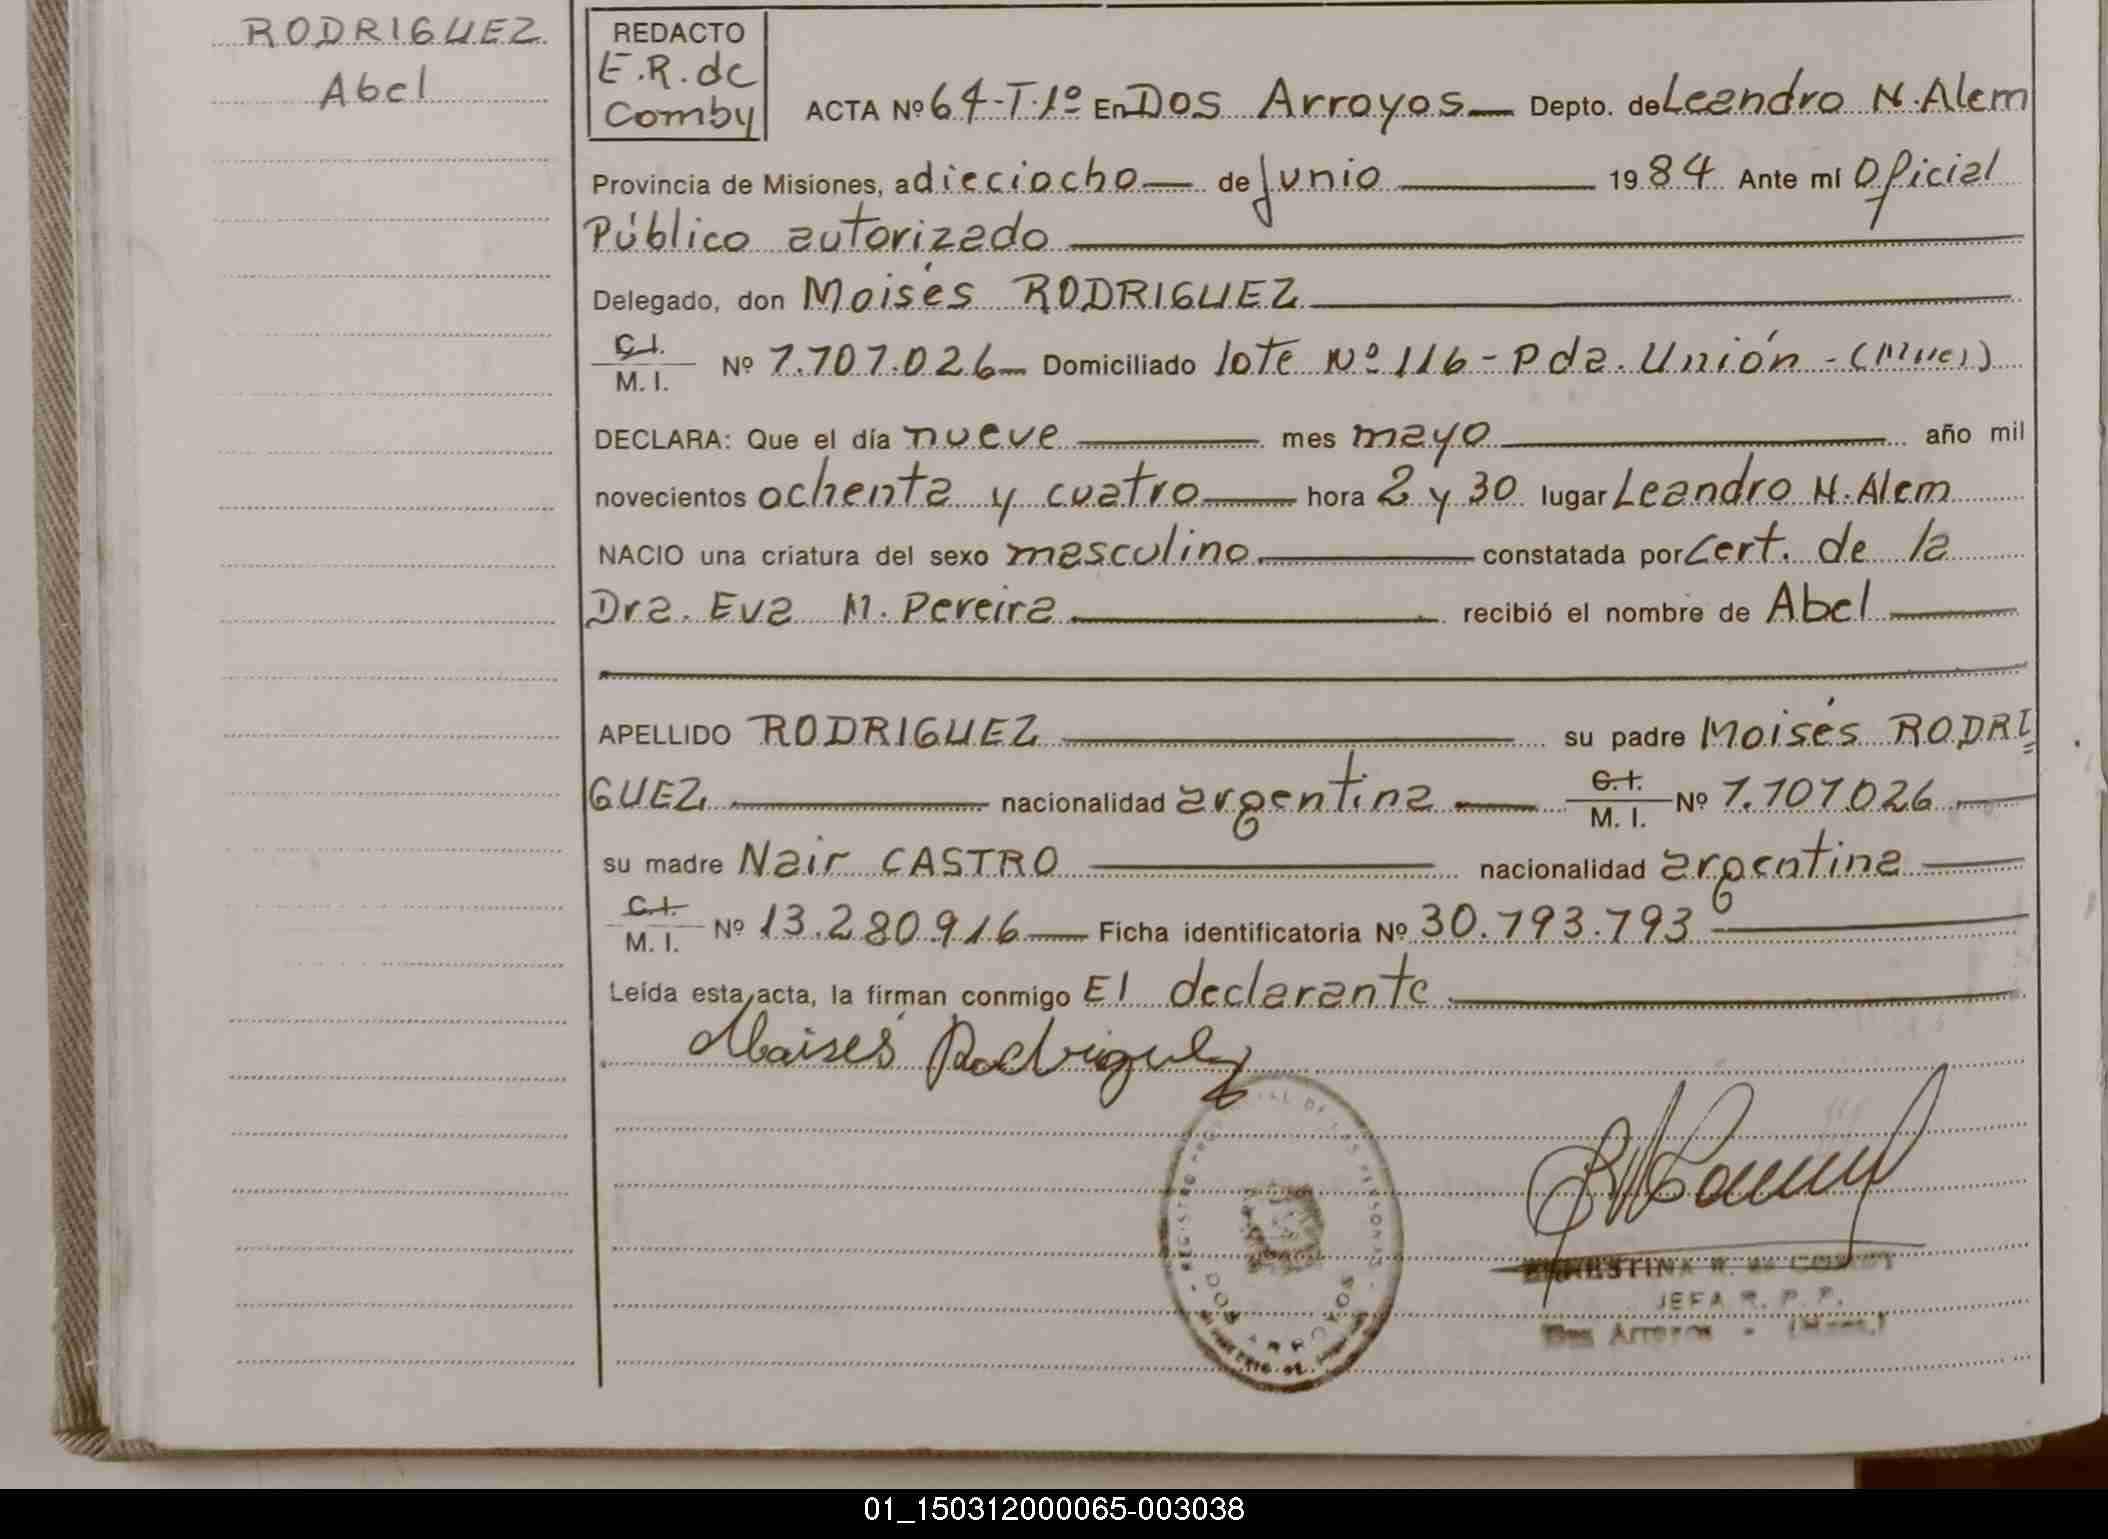 RODRIGUEZ
Abel
REDACTO
E.R. de
Comby
ACTA Nº 64-T.1º En Dos Arroyos Depto. de Leandro N. Alem
Provincia de Misiones, a dieciocho de junio 1984 Ante mí Oficial
Público autorizado
Delegado, don Moisés RODRIGUEZ
C.I.
M. I. Nº 7.707.026 Domiciliado lote Nº 116 - Pda. Unión -
DECLARA: Que el día nueve mes mayo año mil
novecientos ochenta y cuatro hora 2 y 30 lugar Leandro N. Alem
NACIO una criatura del sexo masculino constatada por Cert. de la
Dra. Eva M. Pereira recibió el nombre de Abel
APELLIDO RODRIGUEZ su padre Moisés RODRI
GUEZ nacionalidad argentina C.I.
M. I. Nº 7.707.026
su madre Nair CASTRO nacionalidad argentina
C.I.
M. I. Nº 13.280.916 Ficha identificatoria Nº 30.793.793
Leída esta acta, la firman conmigo El declarante
Moisés Rodriguez
REGISTRO DE LAS PERSONAS
DOS ARROYOS
ERNESTINA R. de COMBY
JEFA R. P. P.
Dos Arroyos - (Mnes.)
01_150312000065-003038